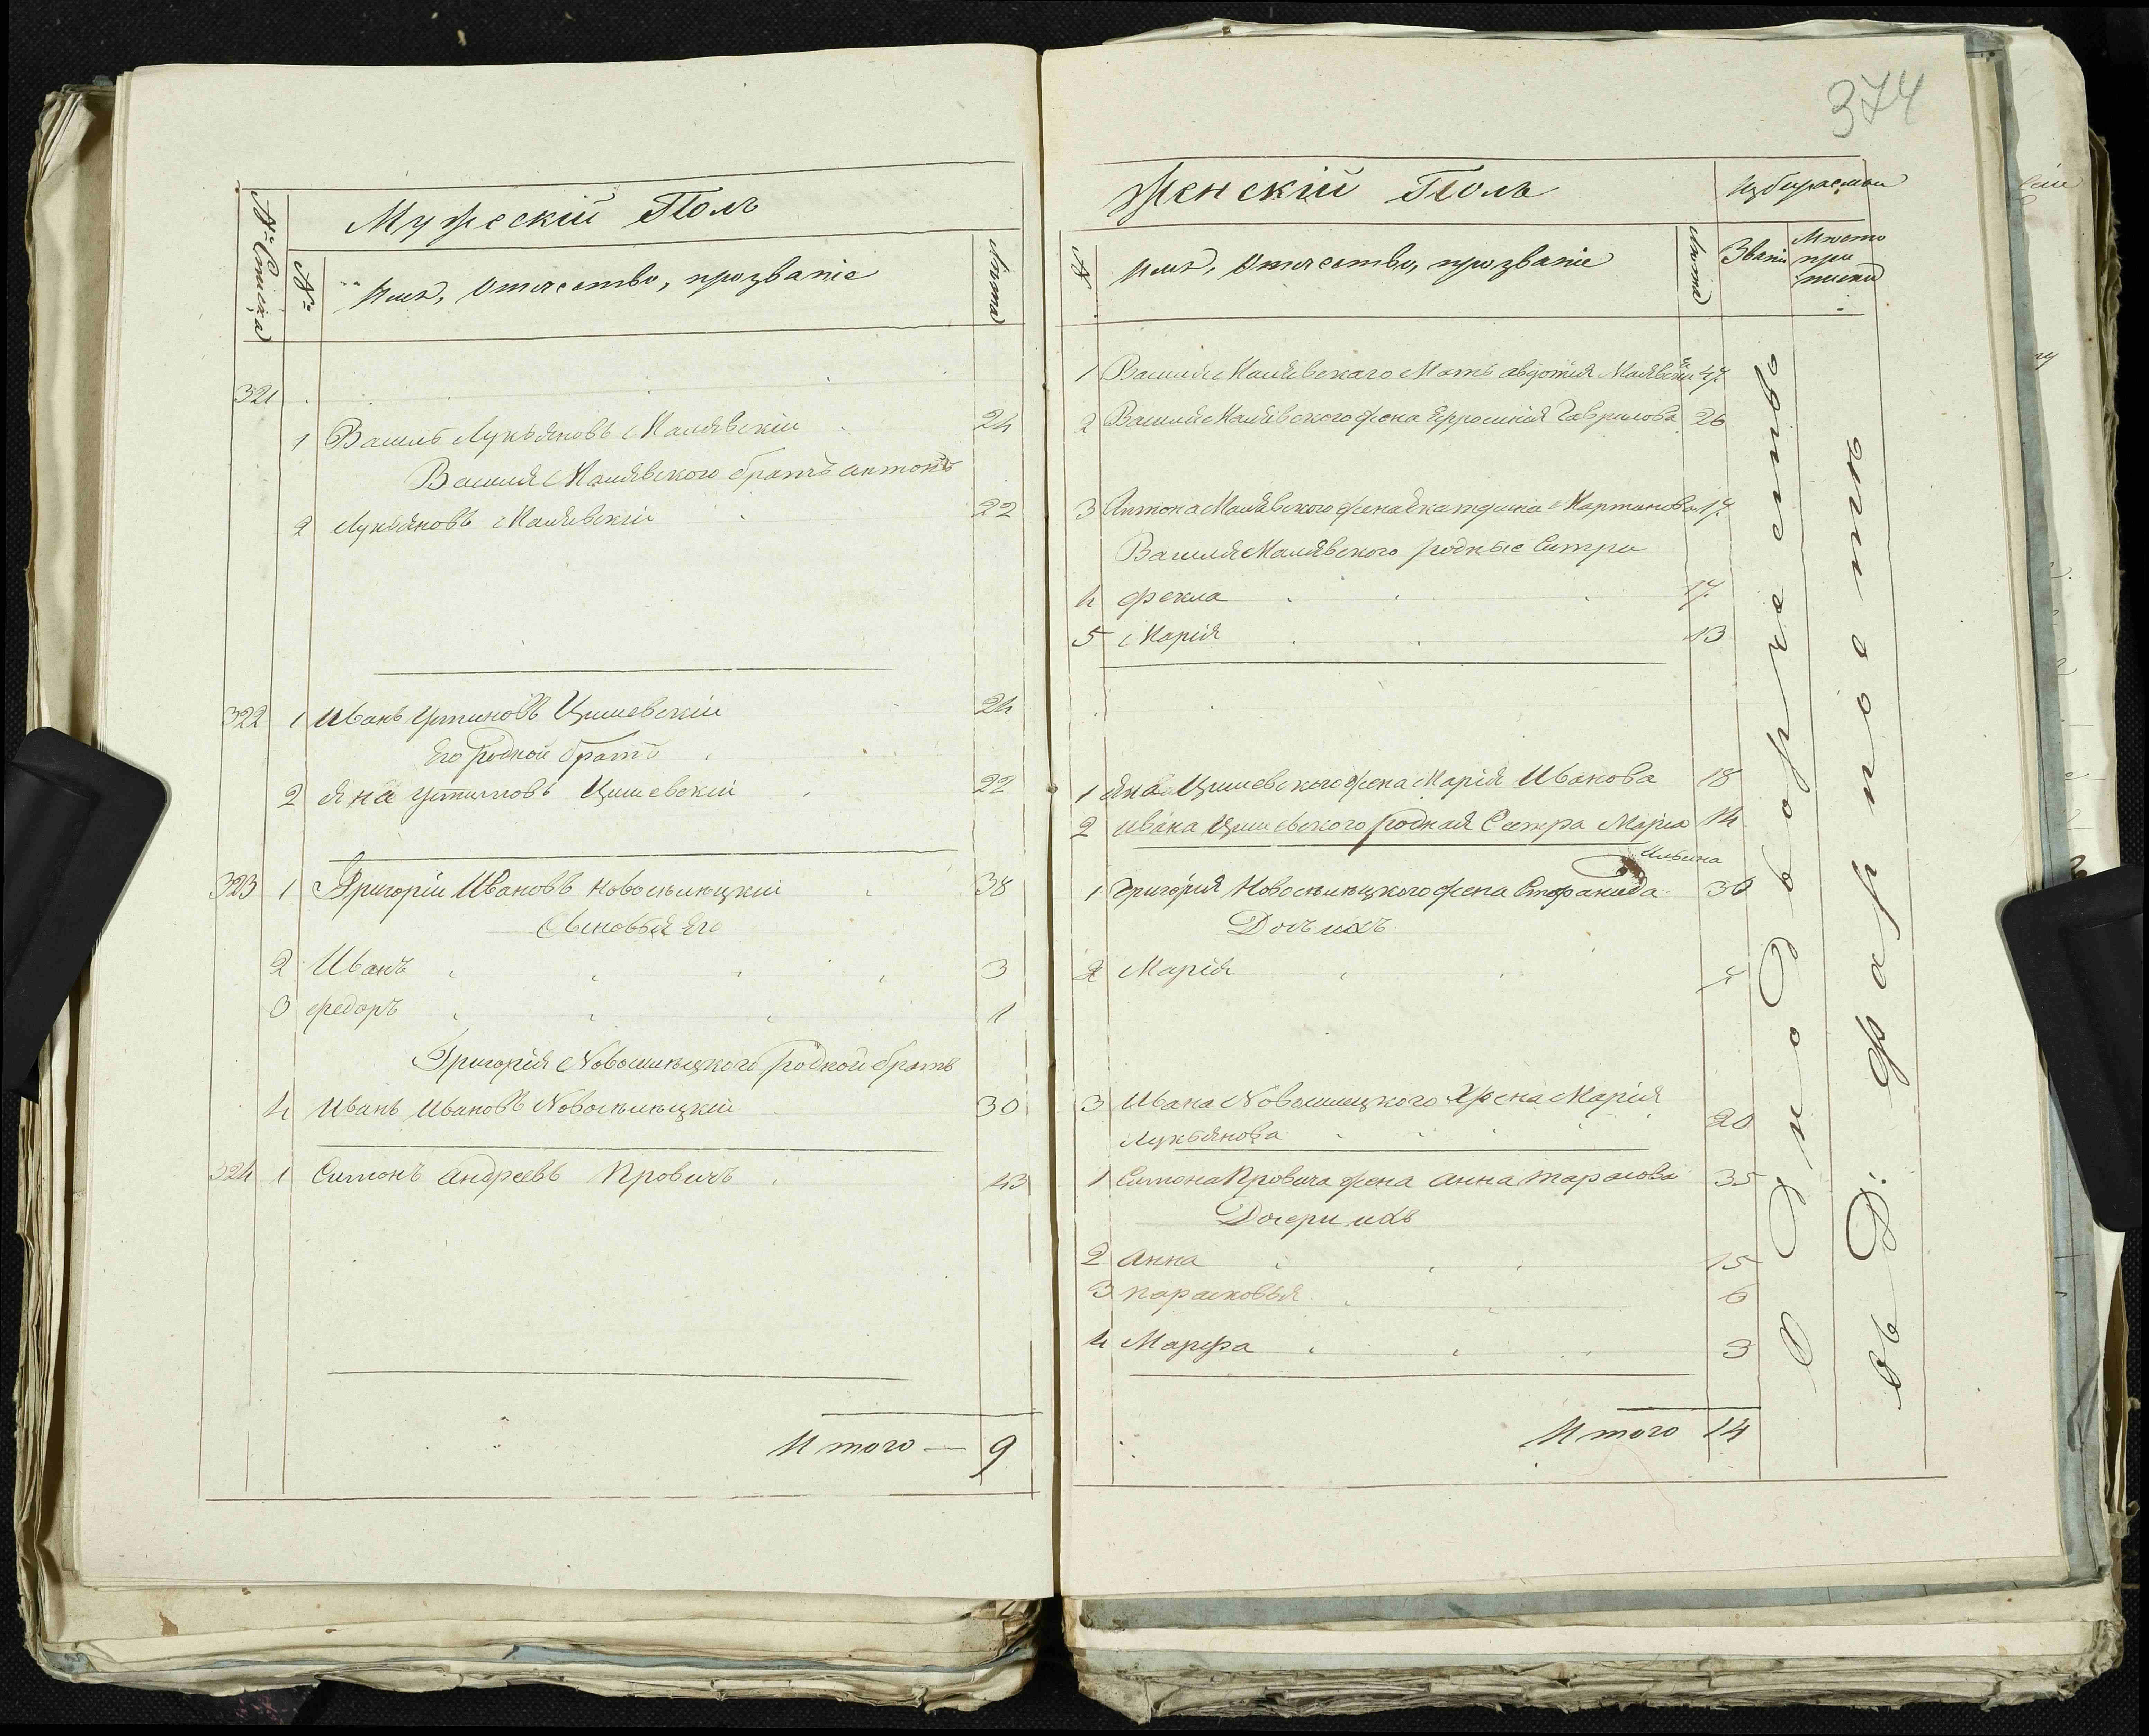 Мужескій Полъ
№ Списка
№
Имя, Отечество, прозваніе
Лѣта
321
1 Василь Лукьяновъ Малявскій 24
Василя Малявского братъ антонъ
2 Лукьяновъ Малявскій 22
322 1 Иванъ Устиновъ Цишевскій 24
Его родной братъ
2 Яна Устиновъ Цишевскій 22
323 1 Григорій Ивановъ Новоселецкій 38
Сыновья Его
2 Иванъ 3
3 Федоръ 1
Григорія Новоселецкого родной братъ
4 Иванъ Ивановъ Новоселецкій 30
324 1 Симонъ Андреевъ Провичъ 43
Итого — 9
374
Женскій Полъ
Избираемыи
№
Имя, Отечество, прозваніе
Лѣта
Званіи
Место
при
писки
1 Василя Малявскаго Мать авдотія 47
2 Василя Малявского жена Ефросинія Гаврилова 26
3 Антона Малявского жена Мартинова 17
Василя Малявского родные Сестри
4 Фекла 17
5 Марія 13
1 Яна Цишевского жена Марія Иванова 18
2 Ивана Цишевского родная Сестра Маріа 14
Ильина
1 Григорія Новоселецкого жена Стефанида 30
Дочь ихъ
2 Марія
3 Ивана Новоселецкого Жена Марія
Лукьянова 20
1 Симона Провича жена Анна тарасова 35
Дочери ихъ
2 Анна 15
3 парасковья 6
4 Марфа 3
Итого 14
Однодворчество
въ Д: Фарпоети